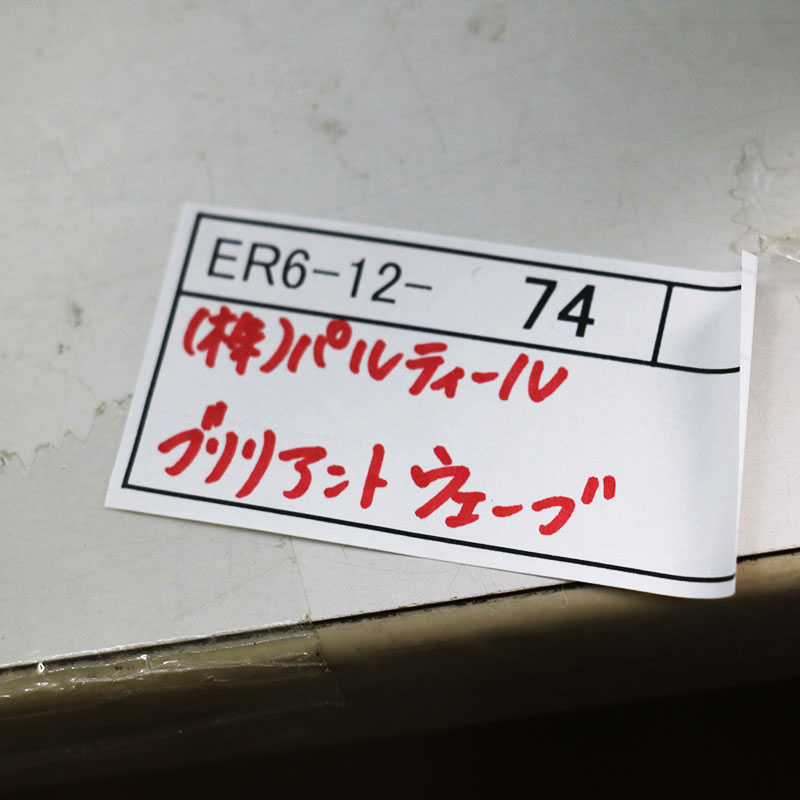 ER6-12- 74
(株)パルティール
ブリリアント ウェーブ